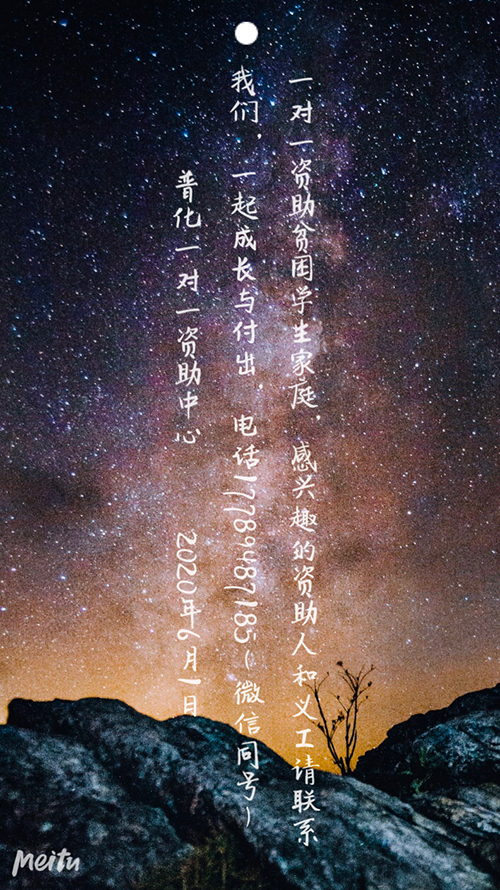 一对一资助贫困学生家庭，感兴趣的资助人和义工请联系
我们，一起成长与付出，电话17789487185（微信同号）
普化一对一资助中心 2020年6月1日
Meitu